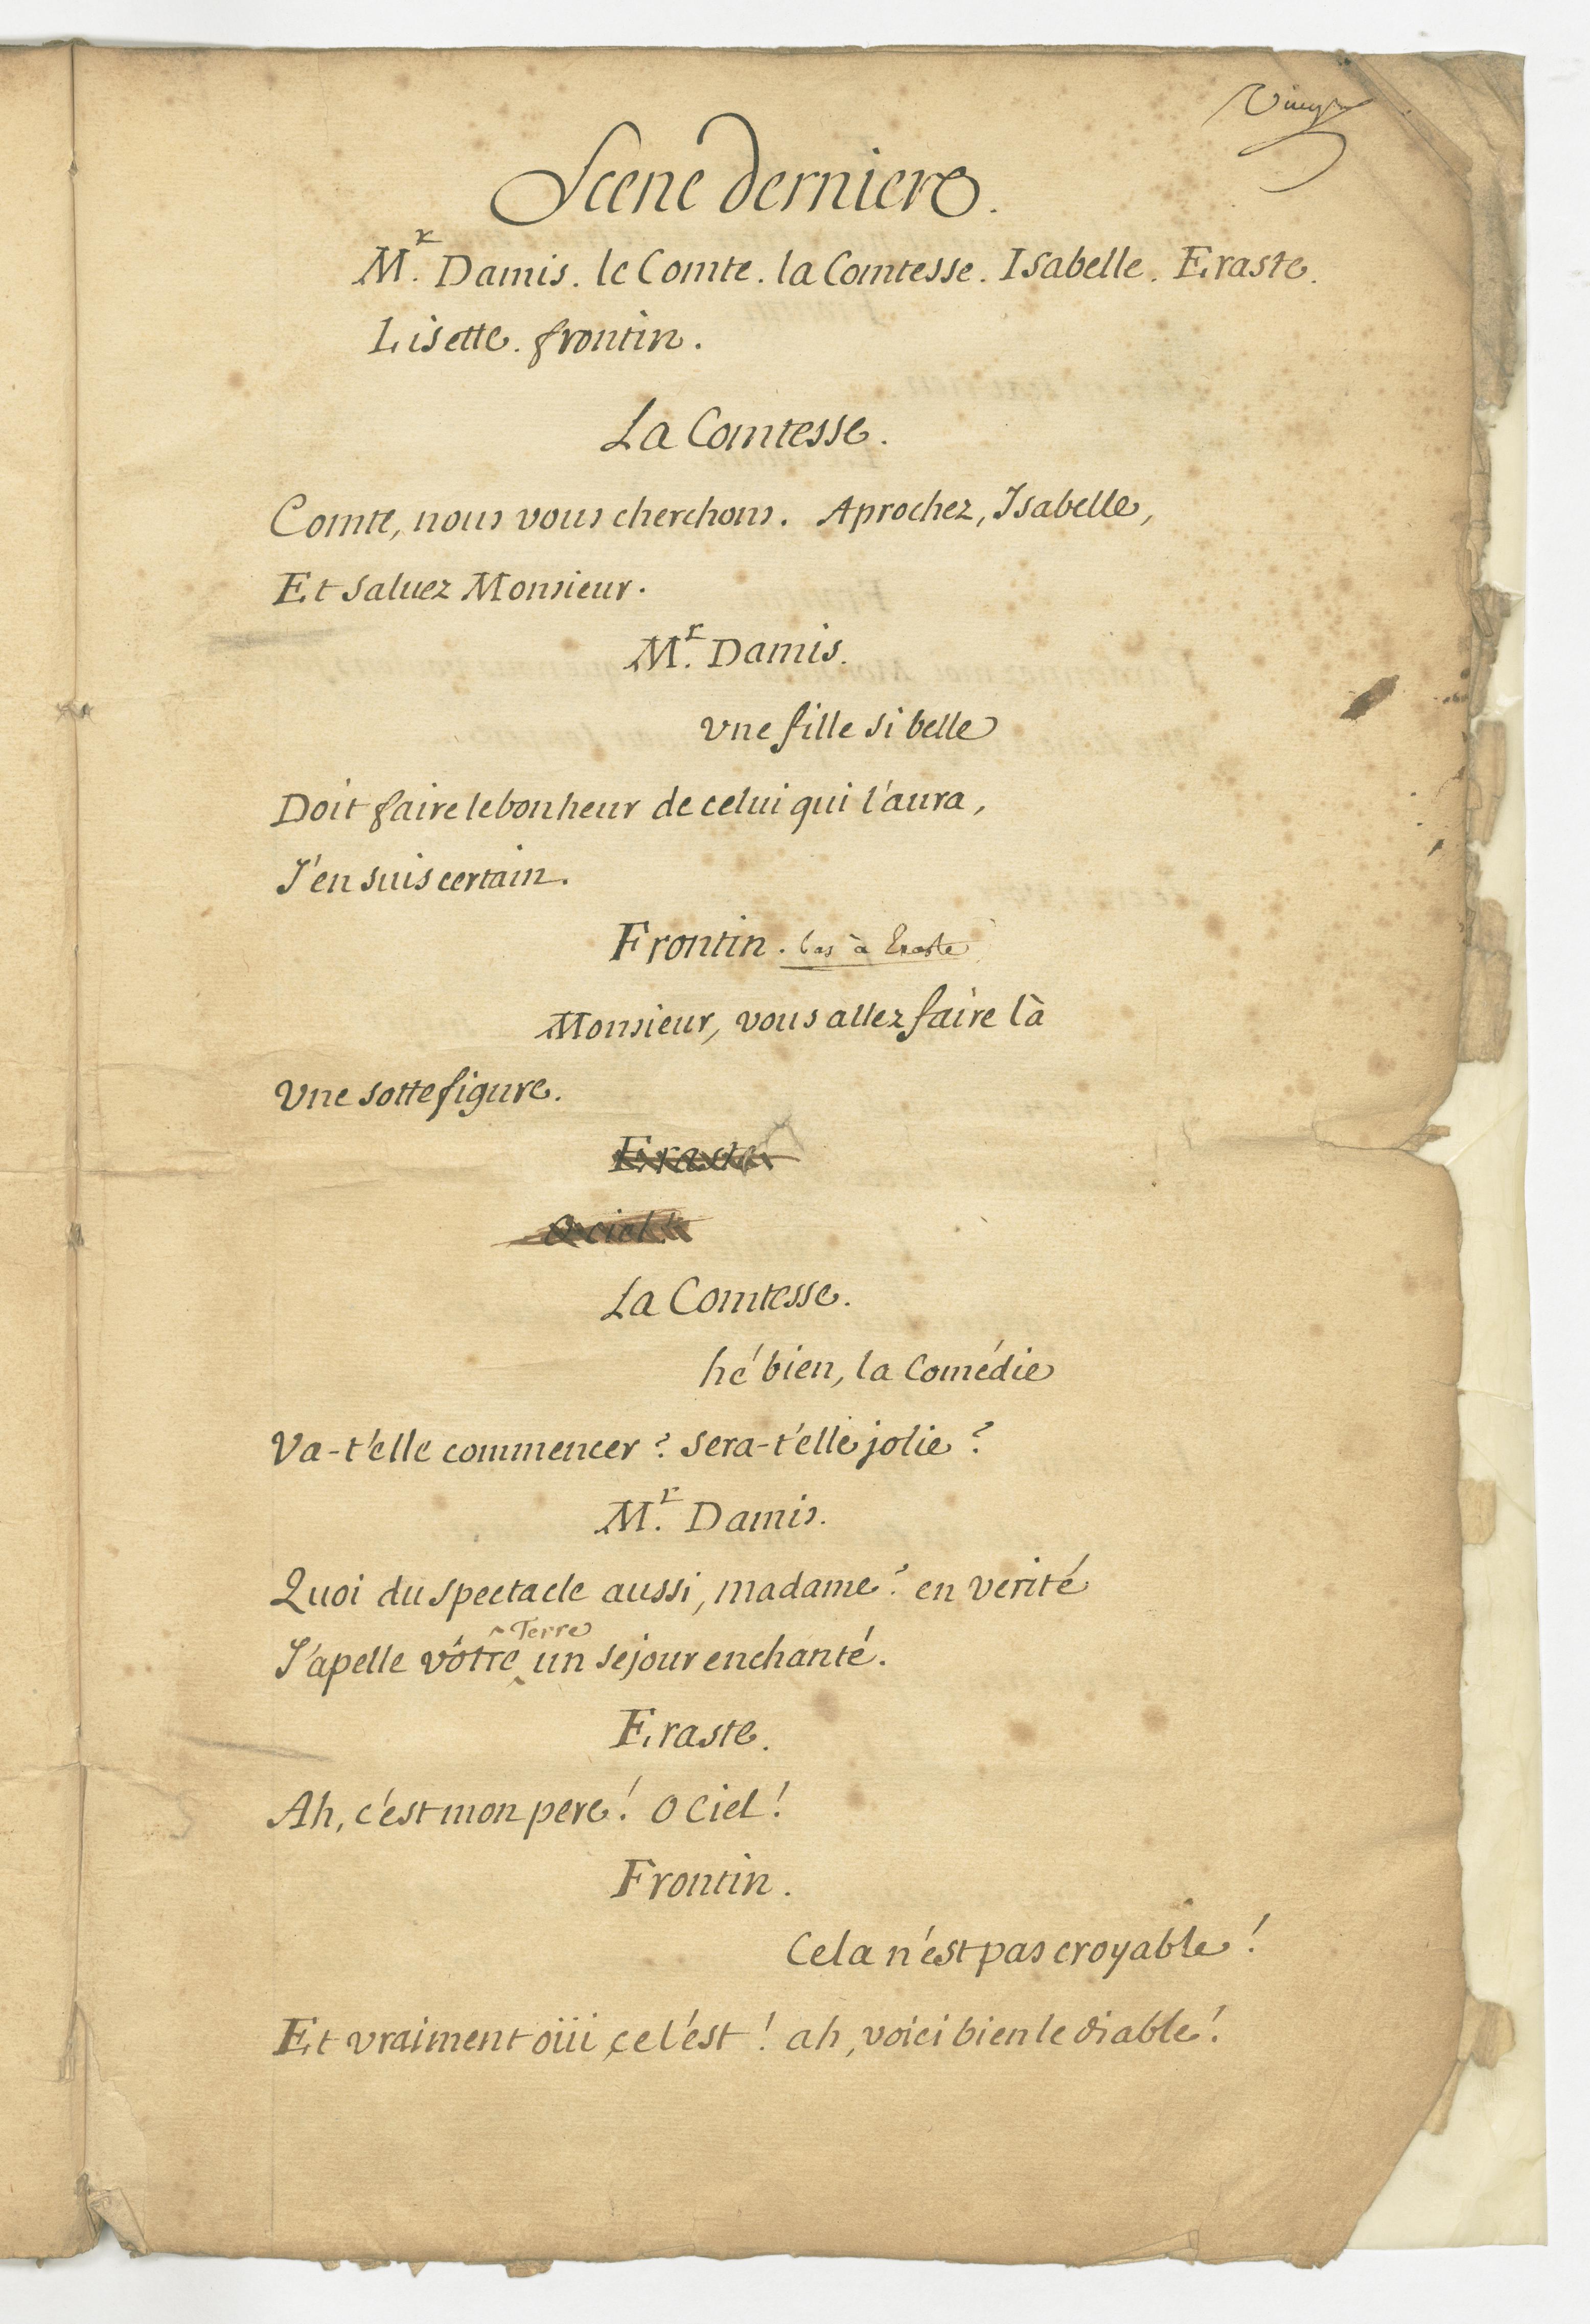 Scene derniere.
Mr. Damis. le Comte. la Comtesse. Isabelle. Eraste.
Lisette. frontin.
La Comtesse.
Comte, nous vous cherchons. Aprochez, Isabelle,
Et saluez Monsieur.
Mr. Damis.
Une fille si belle
Doit faire le bonheur de celui qui l'aura,
J'en suis certain.
Frontin. bas à Eraste
Monsieur, vous allez faire là
Une sotte figure.
Eraste
O ciel!
La Comtesse.
hé bien, la Comédie
Va-t'elle commencer? sera-t'elle jolie?
Mr. Damis.
Quoi du spectacle aussi, madame? en verité
Terre
J'apelle vôtre un sejour enchanté.
Eraste.
Ah, c'est mon pere! O Ciel!
Frontin.
Cela n'est pas croyable!
Et vraiment oüi, ce l'est! ah, voici bien le diable!